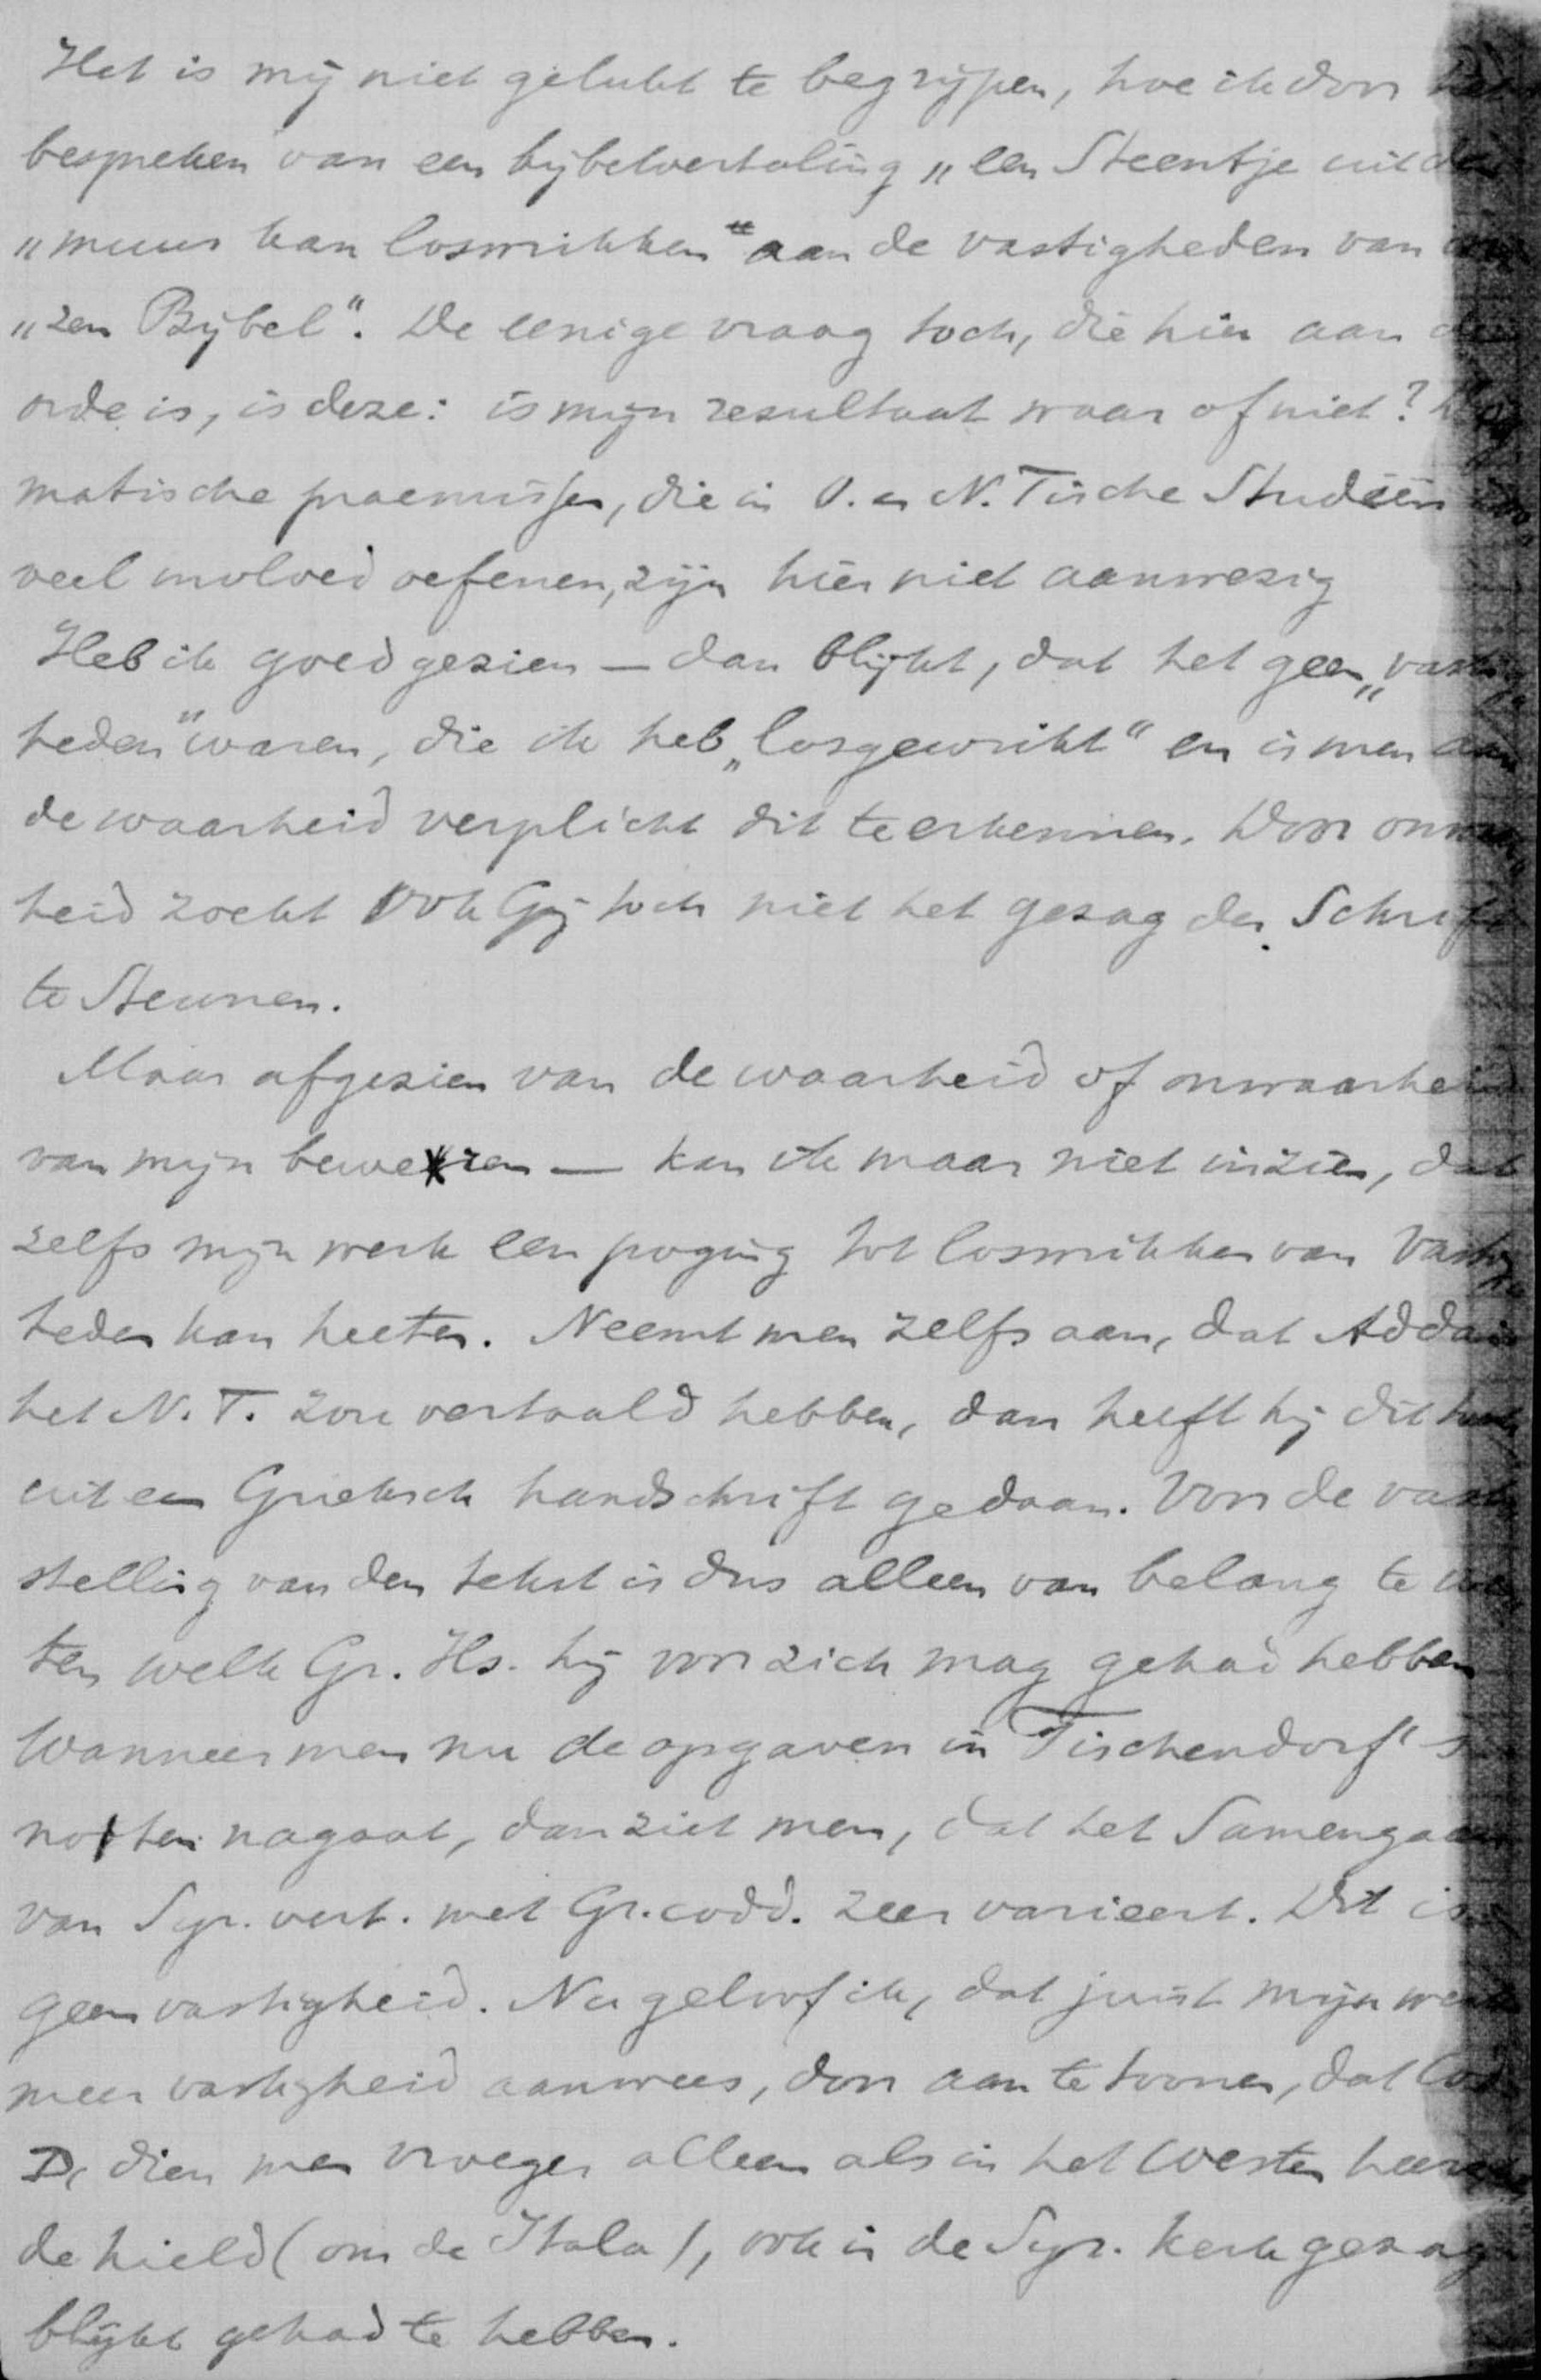 Het is mij niet gelukt te begrijpen, hoe ik door het
bespreken van een bijbelvertaling „een Steentje uit den
„muur kan loswrikken" aan de vastigheden van on
„zen Bijbel". De eenige vraag toch, die hier aan de
orde is, is deze: is mijn resultaat waar of niet? Dog
matische praemissen, die in O. en N. Tische Studiën zoo
veel invloed oefenen, zijn hier niet aanwezig
Heb ik goed gezien — dan blijkt, dat het geen „vastig
heden" waren, die ik heb „losgewrikt" en is men aan
de waarheid verplicht dit te erkennen. Door onwaar
heid zoekt ook Gij toch niet het gezag der Schrift
te Steunen.
Maar afgezien van de waarheid of onwaarheid
van mijn beweren — kan ik maar niet inzien, dat
zelfs mijn werk een poging tot loswrikken van Vastig
heden kan heeten. Neemt men zelfs aan, dat Addai
het N. T. zou vertaald hebben, dan heeft hij dit toch
uit een Grieksch handschrift gedaan. Voor de vast
stelling van den tekst is dus alleen van belang te we
ten welk Gr. Hs. hij voor zich mag gehad hebben
Wanneer men nu de opgaven in Tischendorf's
noten nagaat, dan ziet men, dat het Samengaan
van Syr. vert. met Gr. codd. zeer varieert. Dit is
geen vastigheid. Nu geloof ik, dat juist mijn werk
meer vastigheid aanwees, door aan te toonen, dat Cod
D, dien men vroeger alleen als in het Westen heerschen
de hield (om de Itala), ook in de Syr. kerk gezag
blijkt gehad te hebben.